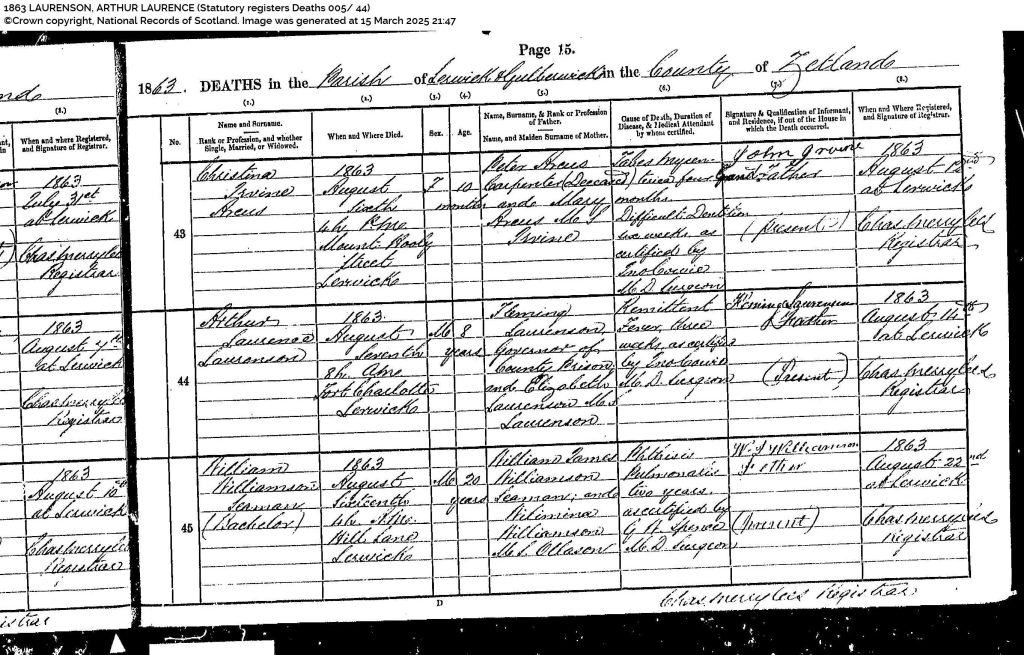 1863 LAURENSON, ARTHUR LAURENCE (Statutory registers Deaths 005/ 44)
©Crown copyright, National Records of Scotland. Image was generated at 15 March 2025 21:47
Page 15.
1863. DEATHS in the Parish of Lerwick & Gulberwick in the County of Zetland
(8.)
When and where Registered, and Signature of Registrar.
1863
July 31st
at Lerwick
Chas Merrylees
Registrar
1863
August 7th
at Lerwick
Chas Merrylees
Registrar
1863
August 10th
at Lerwick
Chas Merrylees
Registrar
(1.)
(2.)
(3.)
(4.)
(5.)
(6.)
(7.)
(8.)
No.
Name and Surname.
Rank or Profession, and whether
Single, Married, or Widowed.
When and Where Died.
Sex.
Age.
Name, Surname, & Rank or Profession
of Father.
Name, and Maiden Surname of Mother.
Cause of Death, Duration of
Disease, & Medical Attendant
by whom certified.
Signature & Qualification of Informant,
and Residence, if out of the House in
which the Death occurred.
When and Where Registered,
and Signature of Registrar.
43
Christina
Irvine
Arcus
1863
August
Sixth
4h. P.M.
Mount Hooly
Street
Lerwick
F
10
months
Peter Arcus
Carpenter (Deceased)
and Mary
Arcus M.S.
Irvine
Tabes Mesen-
terica four
months
Difficult Dentition
six weeks, as
certified by
Jno Cowie
M.D. Surgeon
John Irvine
Grandfather
(Present)
1863
August 12th
at Lerwick
Chas Merrylees
Registrar
44
Arthur
Laurence
Laurenson
1863
August
Seventh
8h. A.M.
Fort Charlotte
Lerwick
M
8
years
Fleming
Laurenson
Governor of
County Prison
and Elizabeth
Laurenson M.S.
Laurenson
Remittent
Fever, three
weeks, as certified
by Jno Cowie
M.D. Surgeon
Fleming Laurenson
Father
(Present)
1863
August 14th
at Lerwick
Chas Merrylees
Registrar
45
William
Williamson
Seaman
(Bachelor)
1863
August
Sixteenth
Hill Lane
Lerwick
M
20
years
William James
Williamson
Seaman, and
Williamina
Williamson
M.S. Ollason
Phthisis
Pulmonalis
two years.
as certified by
G. W. Spence
M.D. Surgeon
Williamson
Father
(Present)
1863
August 22nd
at Lerwick
Chas Merrylees
Registrar
D
Chas Merrylees Registrar